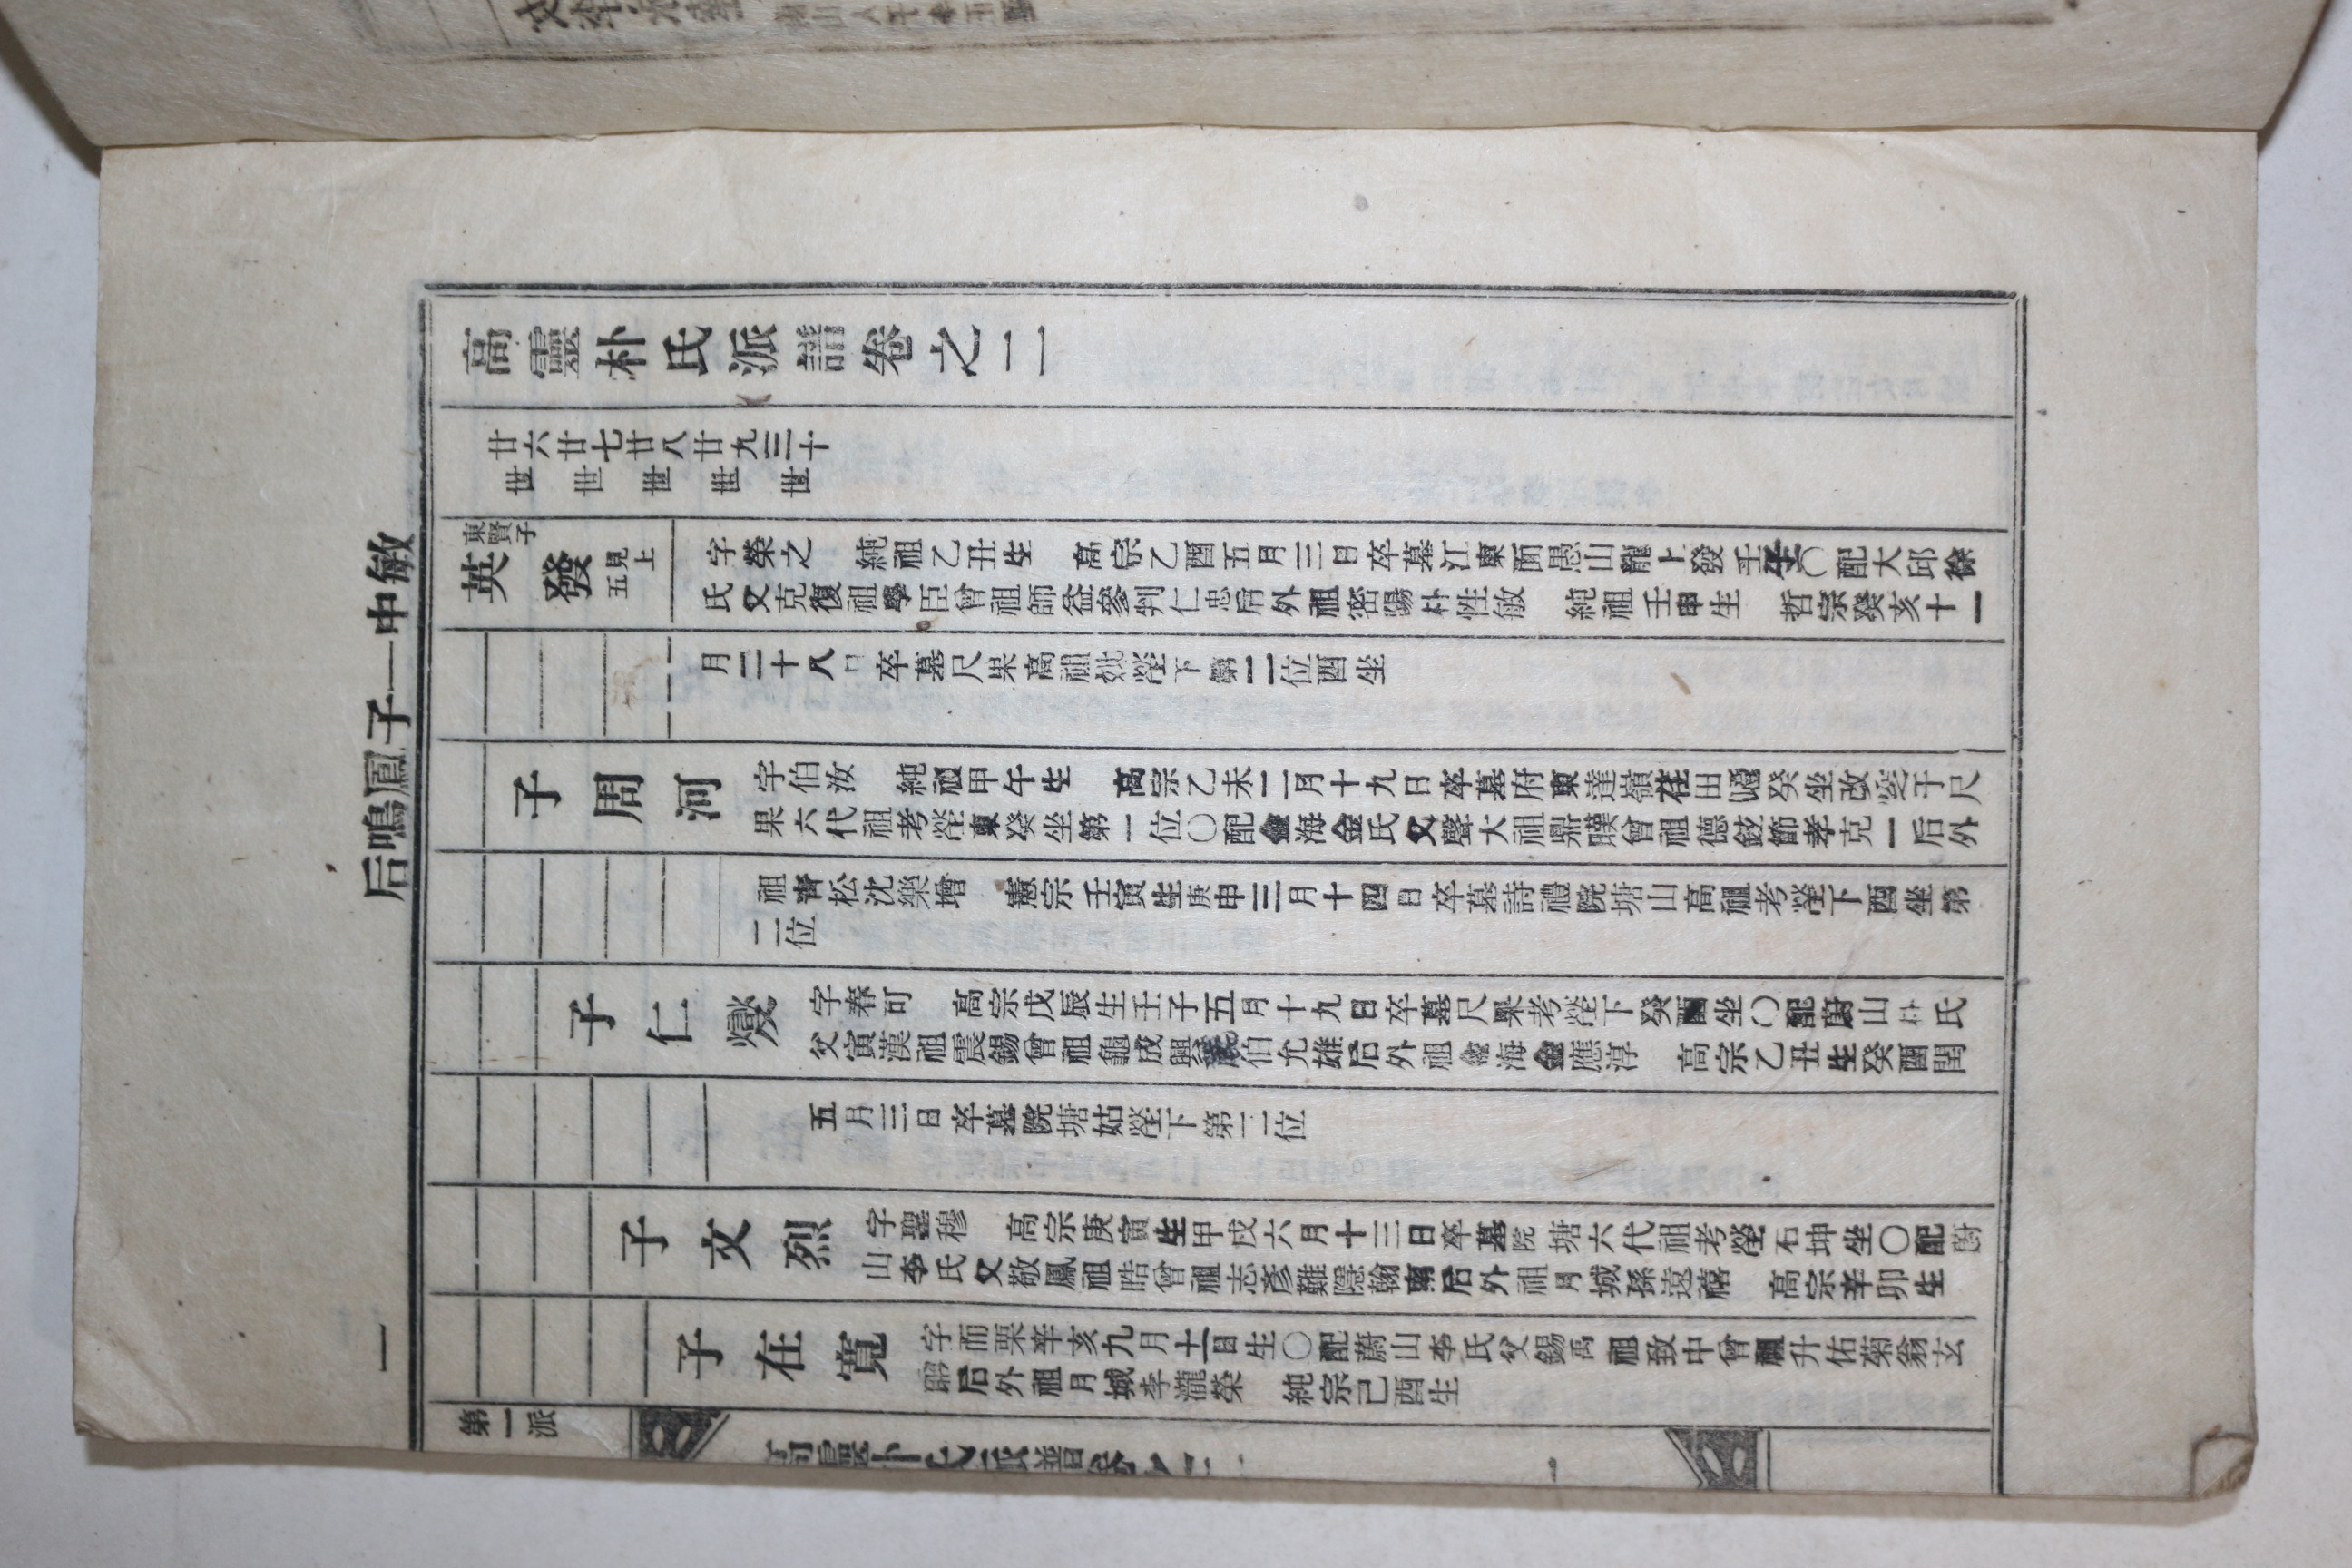 高靈朴氏派譜卷之二
廿六世
廿七世
廿八世
廿九世
三十世
東賢子
英發
五見上
字榮之 純祖乙丑生 高宗乙酉五月三日卒墓江東面愚山龍上發壬坐〇配大邱徐
氏父克復祖學臣曾祖師益參判仁忠后外祖密陽朴性敏 純祖壬申生 哲宗癸亥十一
月二十八日卒墓尺果高祖妣塋下第二位酉坐
子周河
字伯汝 純祖甲午生 高宗乙未二月十九日卒墓府東達嶺在田 癸坐改窆于尺
果六代祖考塋東癸坐第一位〇配金海金氏父聲大祖鼎 曾祖德鉉節孝克一后外
祖靑松沈樂增 憲宗壬寅生庚申三月十四日卒墓詩禮院塘山高祖考塋下酉坐第
二位
子仁燮
字春可 高宗戊辰生壬子五月十九日卒墓尺果考塋下癸酉坐〇配蔚山朴氏
父寅漢祖震錫曾祖龜成興義伯允雄后外祖金海金應淳 高宗乙丑生癸酉閏
五月三日卒墓院塘姑塋下第二位
子文烈
字聖穆 高宗庚寅生甲戌六月十三日卒墓院塘六代祖考塋右坤坐〇配蔚
山李氏父敬鳳祖晧曾祖志彥難隱翰南后外祖月城孫遠禧 高宗辛卯生
子在寬
字而栗辛亥九月十一日生〇配蔚山李氏父錫禹 祖致中曾祖升佑菊翁玄
聖后外祖月城李瀧榮 純宗己酉生
第一派
高靈朴氏派譜卷之二
一
后鳴鳳子一中敏
一